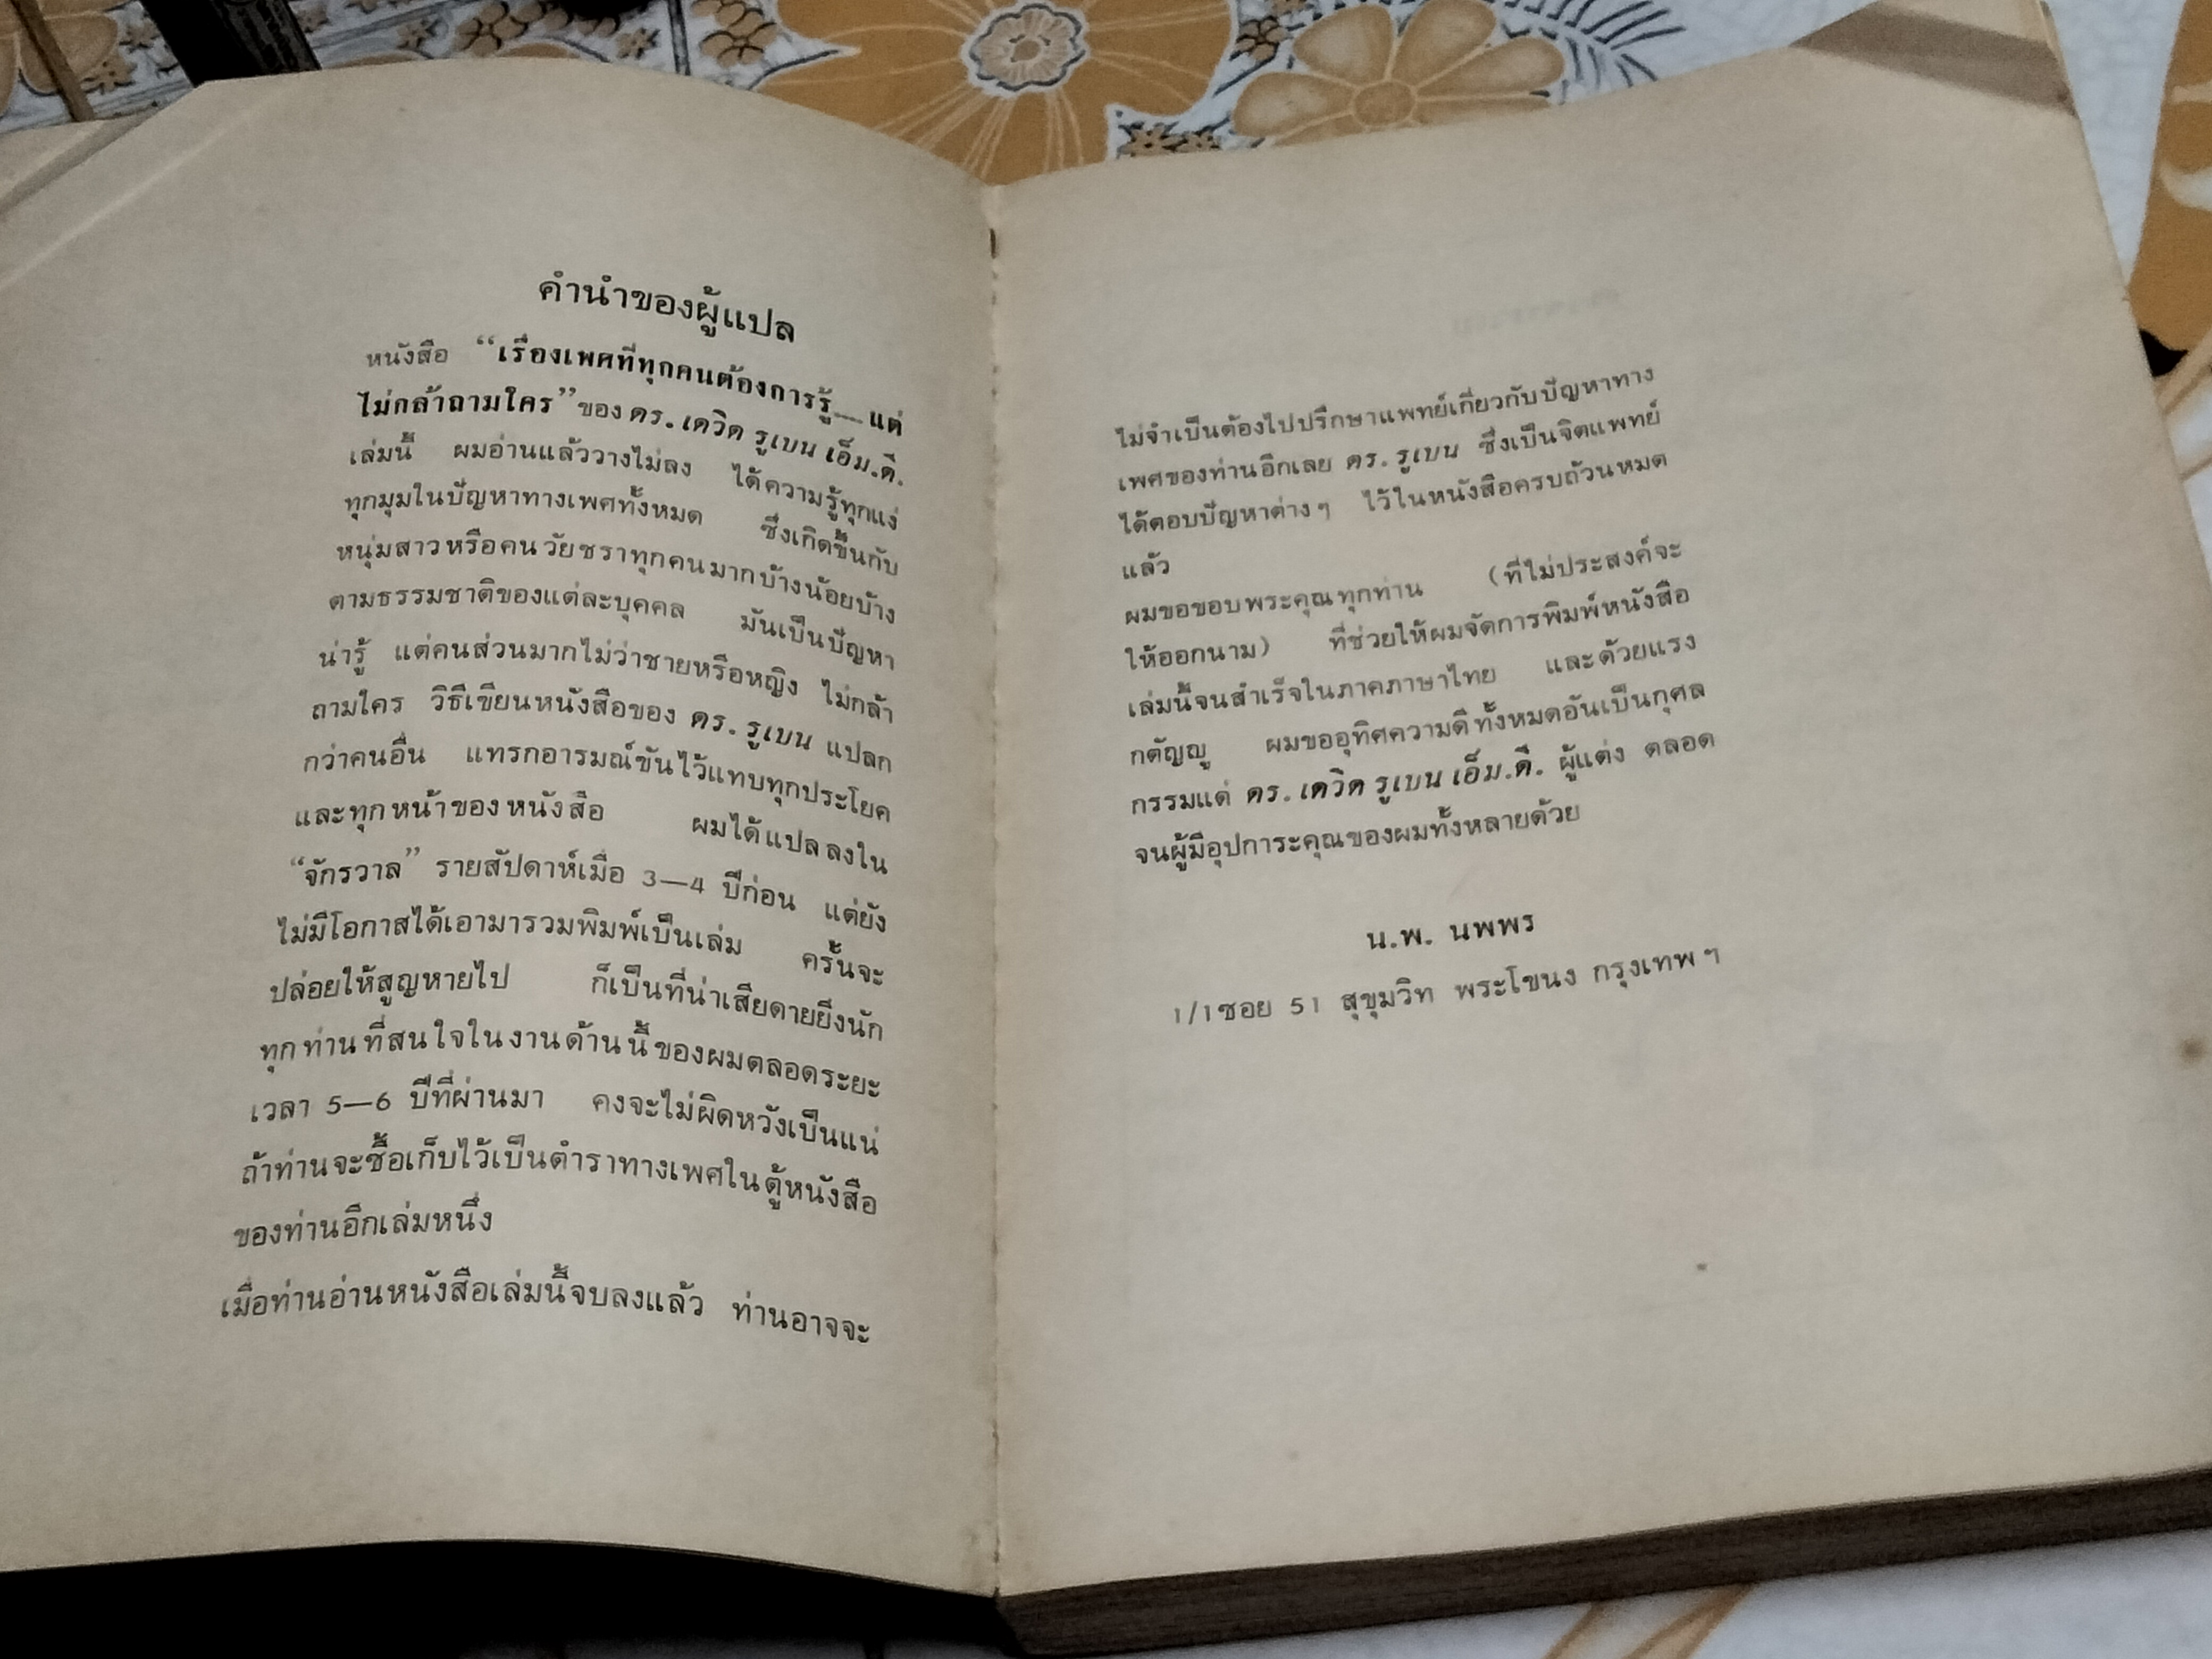 คำนำของผู้แปล
หนังสือ “เรื่องเพศที่ทุกคนต้องการรู้—แต่
ไม่กล้าถามใคร” ของ ดร. เดวิด รูเบน เอ็ม.ดี.
เล่มนี้ ผมอ่านแล้ววางไม่ลง ได้ความรู้ทุกแง่
ทุกมุมในปัญหาทางเพศทั้งหมด ซึ่งเกิดขึ้นกับ
หนุ่มสาวหรือคนวัยชราทุกคนมากบ้างน้อยบ้าง
ตามธรรมชาติของแต่ละบุคคล มันเป็นปัญหา
น่ารู้ แต่คนส่วนมากไม่ว่าชายหรือหญิง ไม่กล้า
ถามใคร วิธีเขียนหนังสือของ ดร. รูเบน แปลก
กว่าคนอื่น แทรกอารมณ์ขันไว้แทบทุกประโยค
และทุกหน้าของหนังสือ ผมได้แปลลงใน
“จักรวาล” รายสัปดาห์เมื่อ 3—4 ปีก่อน แต่ยัง
ไม่มีโอกาสได้เอามารวมพิมพ์เป็นเล่ม ครั้นจะ
ปล่อยให้สูญหายไป ก็เป็นที่น่าเสียดายยิ่งนัก
ทุกท่านที่สนใจในงานด้านนี้ของผมตลอดระยะ
เวลา 5—6 ปีที่ผ่านมา คงจะไม่ผิดหวังเป็นแน่
ถ้าท่านจะซื้อเก็บไว้เป็นตำราทางเพศในตู้หนังสือ
ของท่านอีกเล่มหนึ่ง
เมื่อท่านอ่านหนังสือเล่มนี้จบลงแล้ว ท่านอาจจะ
ไม่จำเป็นต้องไปปรึกษาแพทย์เกี่ยวกับปัญหาทาง
เพศของท่านอีกเลย ดร. รูเบน ซึ่งเป็นจิตแพทย์
ได้ตอบปัญหาต่างๆ ไว้ในหนังสือครบถ้วนหมด
แล้ว
ผมขอขอบพระคุณทุกท่าน (ที่ไม่ประสงค์จะ
ให้ออกนาม) ที่ช่วยให้ผมจัดการพิมพ์หนังสือ
เล่มนี้จนสำเร็จในภาคภาษาไทย และด้วยแรง
กตัญญู ผมขออุทิศความดีทั้งหมดอันเป็นกุศล
กรรมแด่ ดร. เดวิด รูเบน เอ็ม.ดี. ผู้แต่ง ตลอด
จนผู้มีอุปการะคุณของผมทั้งหลายด้วย
น.พ. นพพร
1/1ซอย 51 สุขุมวิท พระโขนง กรุงเทพฯ